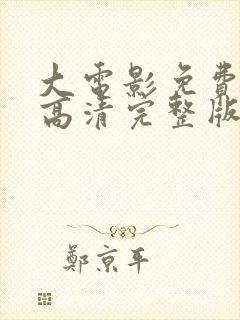 大電影免費
高清完整版
鄭京平